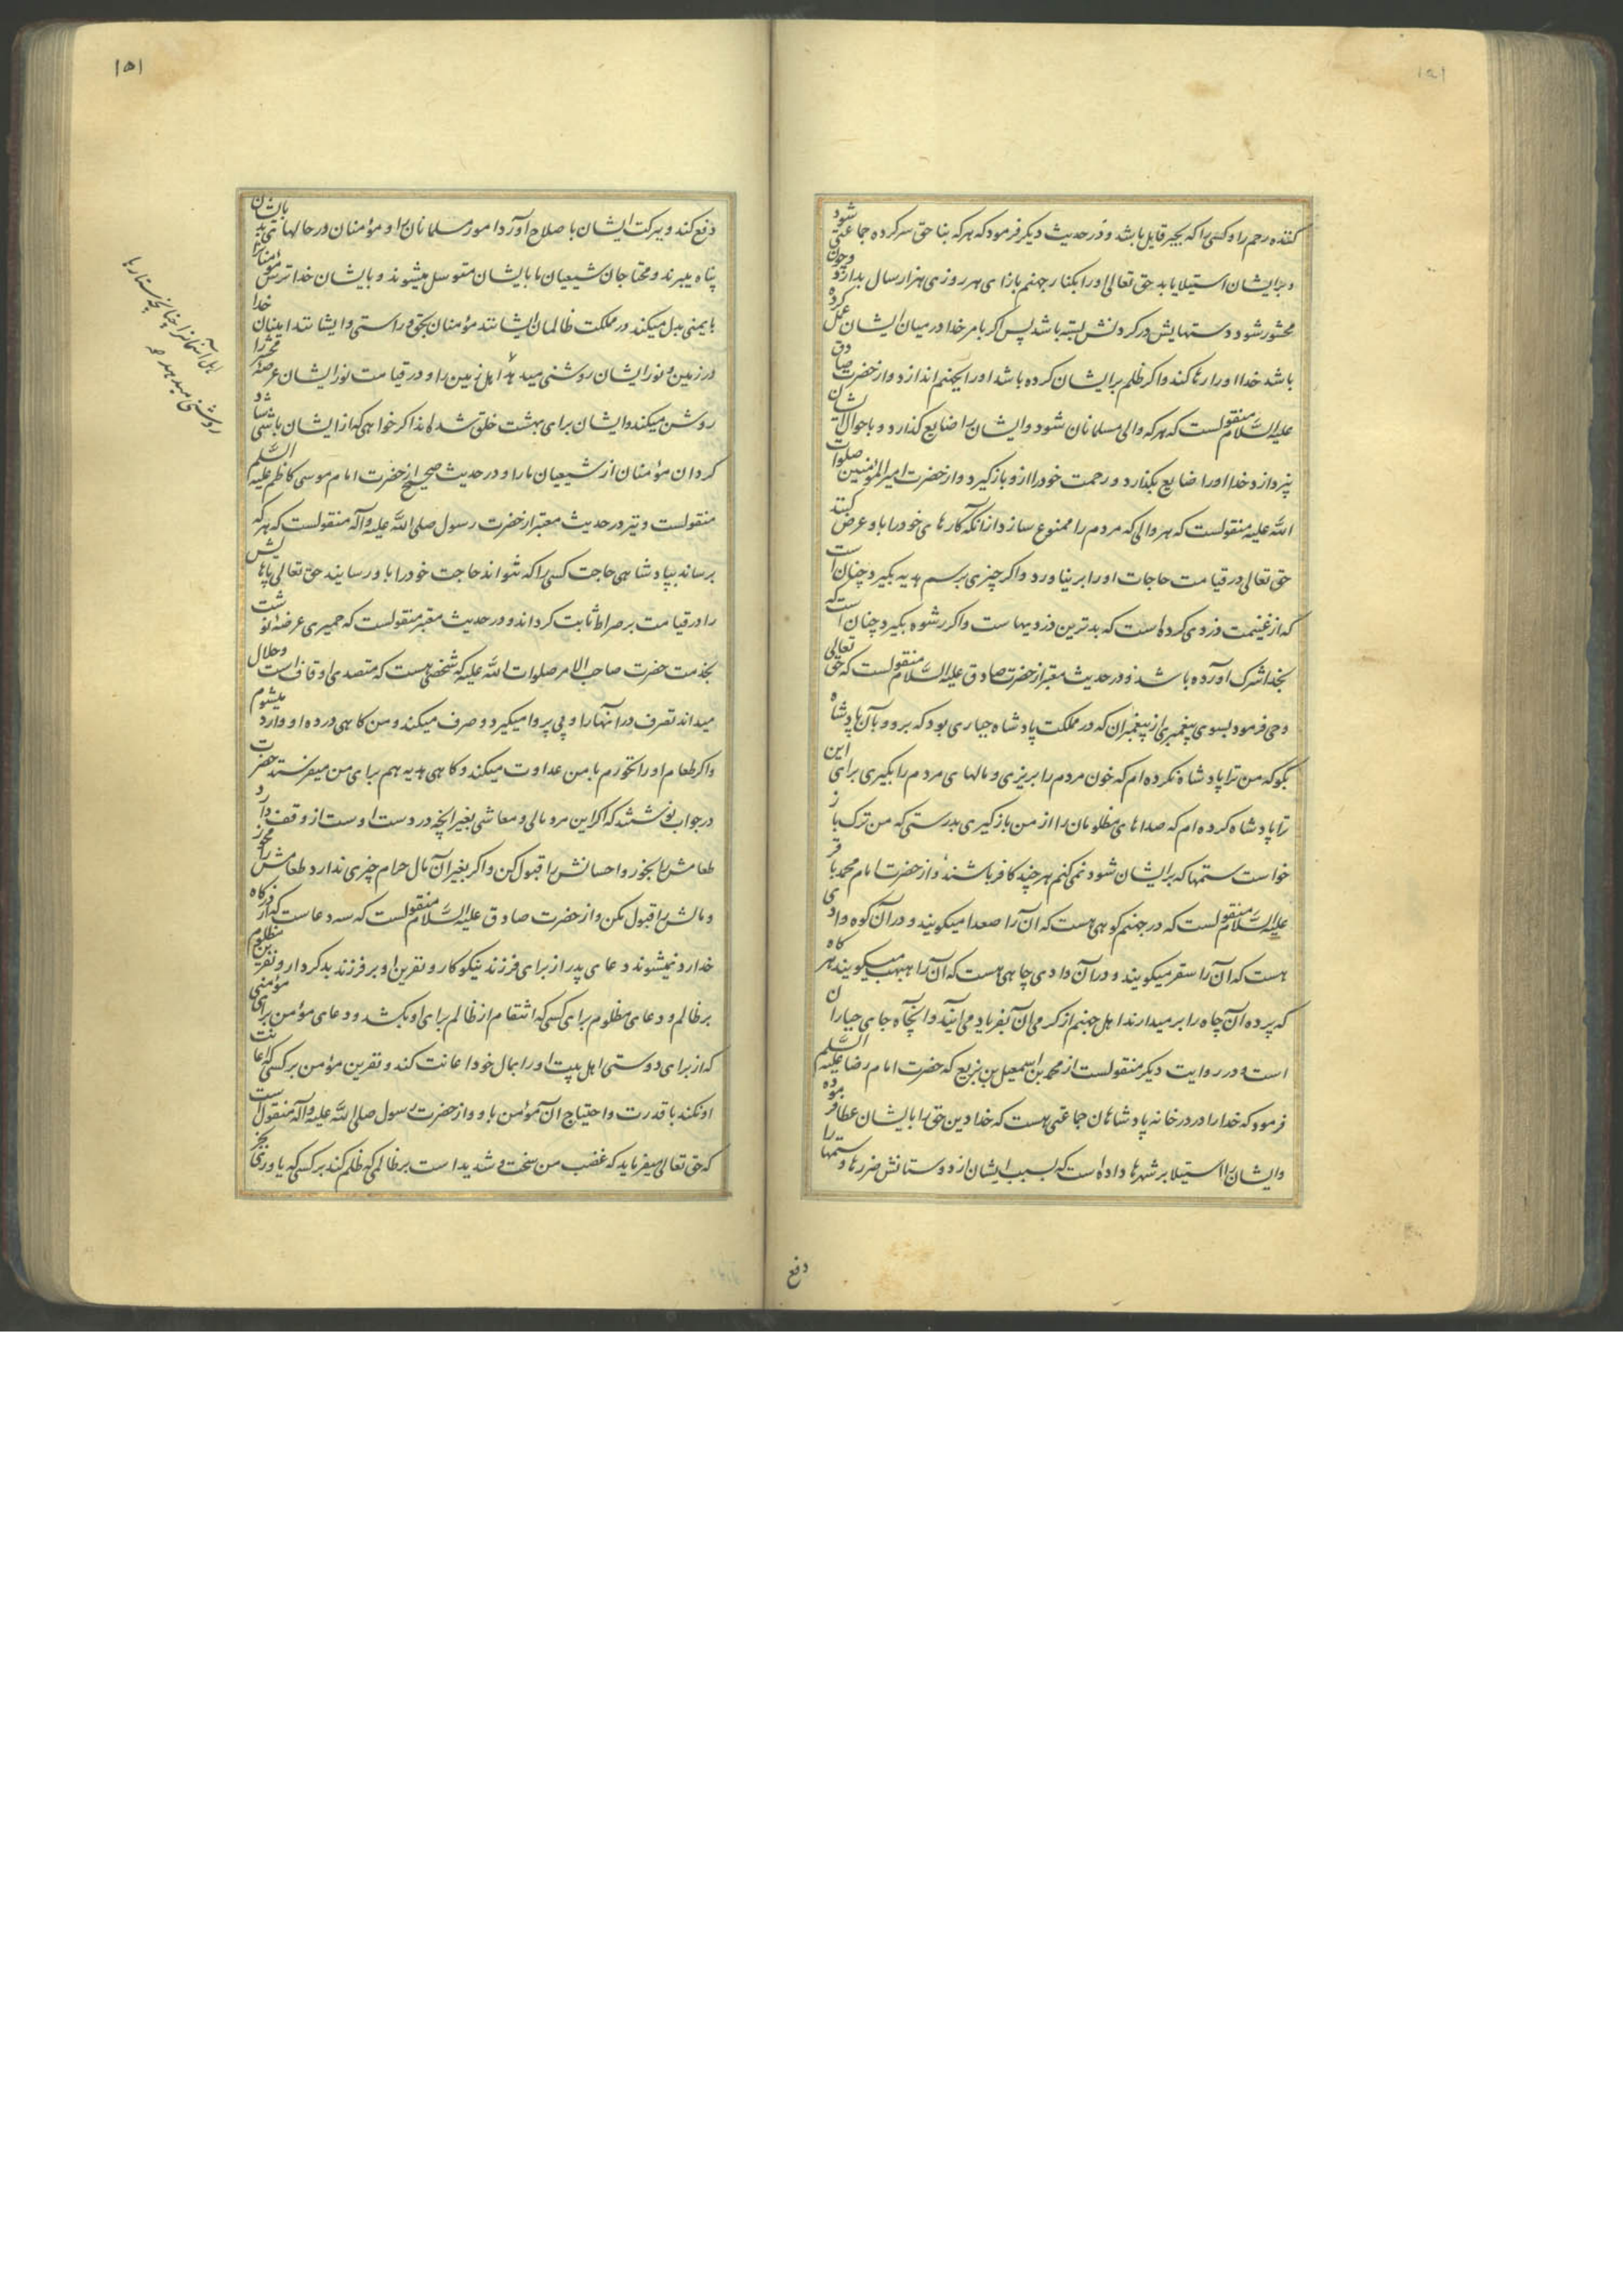 ۱۵۱
کننده رحم را و کسی را که بجبر قابل باشد و در حدیث دیکر فرمود که هر که بنا حق سرکرده جماعتی شود
و برایشان استیلا یابد حق تعالی او را بکنار جهنم بازای هر روزی هزار سال بدارد و چون
محشور شود دستهایش در کردنش بسته باشد پس اکر بامر خدا در میان ایشان عمل کرده
باشد خدا او را رها کند و اکر ظلم بر ایشان کرده باشد او را بجهنم اندازد و از حضرت صادق
علیه السلام منقولست که هر که والی مسلمانان شود و ایشان را ضایع کذارد و باحوال ایشان
نپردازد خدا او را ضایع بکذارد و رحمت خود را ازو باز کیرد و از حضرت امیرالمؤمنین صلوات
الله علیه منقولست که هر والی که مردم را ممنوع سازد از انکه کارهای خود را باو عرض کنند
حق تعالی در قیامت حاجات او را بر نیاورد و اکر چیزی برسم هدیه بکیرد چنان است
که از غنیمت دزدی کرده است که بدترین دزدیهاست و اکر رشوه بکیرد چنان است که
بخدا شرک آورده باشد و در حدیث معتبر از حضرت صادق علیه السلام منقولست که حق تعالی
وحی فرمود بسوی پیغمبری از پیغمبران که در مملکت پادشاه جباری بود که برو و بآن پادشاه
بکو که من ترا پادشاه نکرده ام که خون مردم را بریزی و مالهای مردم را بکیری برای این
ترا پادشاه کرده ام که صداهای مظلومان را از من باز کیری بدرستی که من ترک باز
خواست ستمها که برایشان شود نمی کنم هر چند کافر باشند و از حضرت امام محمد باقر
علیه السلام منقولست که در جهنم کوهی هست که آن را صعدا میکویند و در آن کوه وادی
هست که آن را سقر میکویند و در آن وادی چاهی هست که آن را هبهب میکویند هر کاه
که پرده آن چاه را بر میدارند اهل جهنم از کرمی آن بفریاد می آیند و آنچاه جای جباران
است و در روایت دیکر منقولست از محمد بن اسمعیل بن بزیع که حضرت امام رضا علیه السلم
فرمود که خدا را در در خانه پادشاهان جماعتی هست که خدا دین حق را بایشان عطا فرموده
و ایشان را استیلا بر شهرها داده است که بسبب ایشان از دوستانش ضررها و ستمها را
دفع
۱۵۱
دفع کند و ببرکت ایشان باصلاح آورد امور مسلمانان را و مؤمنان در حالها بایشان
پناه میبرند و محتاجان شیعیان ما بایشان متوسل میشوند و بایشان خدا ترس مؤمنان را
بایمنی بدل میکند در مملکت ظالمان ایشانند مؤمنان بحق و راستی و ایشانند امینان خدا
در زمین و نور ایشان روشنی میدهد اهل زمین را و در قیامت نور ایشان عرصه محشر را
روشن میکند و ایشان برای بهشت خلق شده اند اکر خواهی که از ایشان باشی شاد
کردان مؤمنان از شیعیان ما را و در حدیث صحیح از حضرت امام موسی کاظم علیه السلم
منقولست و نیز در حدیث معتبر از حضرت رسول صلی الله علیه و آله منقولست که هر که
برساند بپادشاهی حاجت کسی را که نتواند حاجت خود را باو رسانید حق تعالی پاهایش
را در قیامت بر صراط ثابت کرداند و در حدیث معتبر منقولست که حمیری عرضه نوشت
بخدمت حضرت صاحب الامر صلوات الله علیه که شخصی هست که متصدی اوقاف است و حلال
میداند تصرف در آنها را و پی پروا میکیرد و صرف میکند و من کاهی در ده او وارد میشوم
و اکر طعام او را نخورم با من عداوت میکند و کاهی هدیه هم برای من میفرستد حضرت
در جواب نوشتند که اکر این مرد مالی و معاشی بغیر انچه در دست اوست از وقف دارد
طعامش را بخور و احسانش را قبول کن و اکر بغیر آن مال حرام چیزی ندارد طعامش را مخور
و مالش را قبول مکن و از حضرت صادق علیه السلام منقولست که سه دعاست که از درکاه
خدا رد نمیشوند دعای پدر از برای فرزند نیکوکار و نفرین او بر فرزند بدکردار و نفرین مظلوم
بر ظالم و دعای مظلوم برای کسی که انتقام از ظالم برای او بکشد و دعای مؤمن برای مؤمنی
که از برای دوستی اهل بیت او را بمال خود اعانت کند و نفرین مؤمن بر کسی که اعانت
او نکند با قدرت و احتیاج آن مؤمن باو و از حضرت رسول صلی الله علیه و آله منقول است
که حق تعالی میفرماید که غضب من سخت و شدید است بر ظالمی که ظلم کند بر کسی که یاوری بجز
اهل آسمانرا چنانچه ستارها
روشنی میدهد